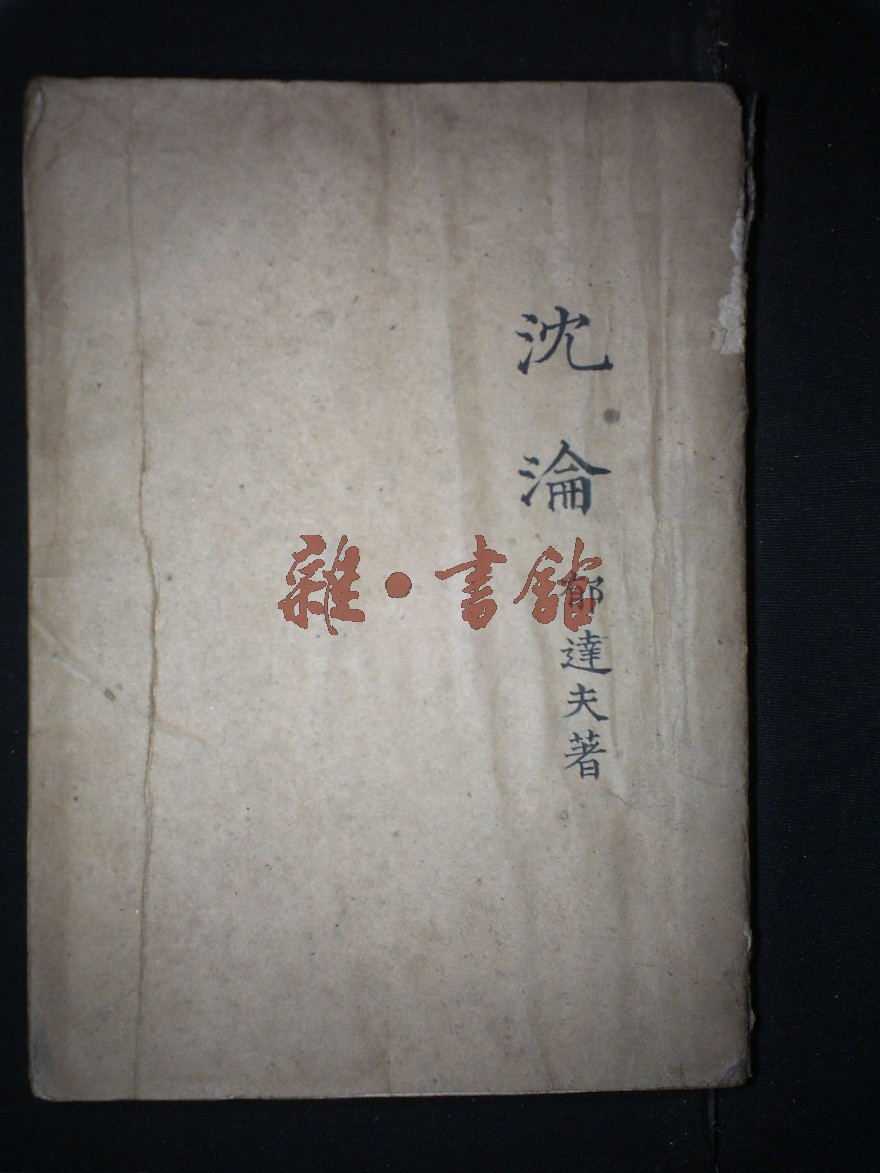 沈淪
郁達夫著
雜·書館